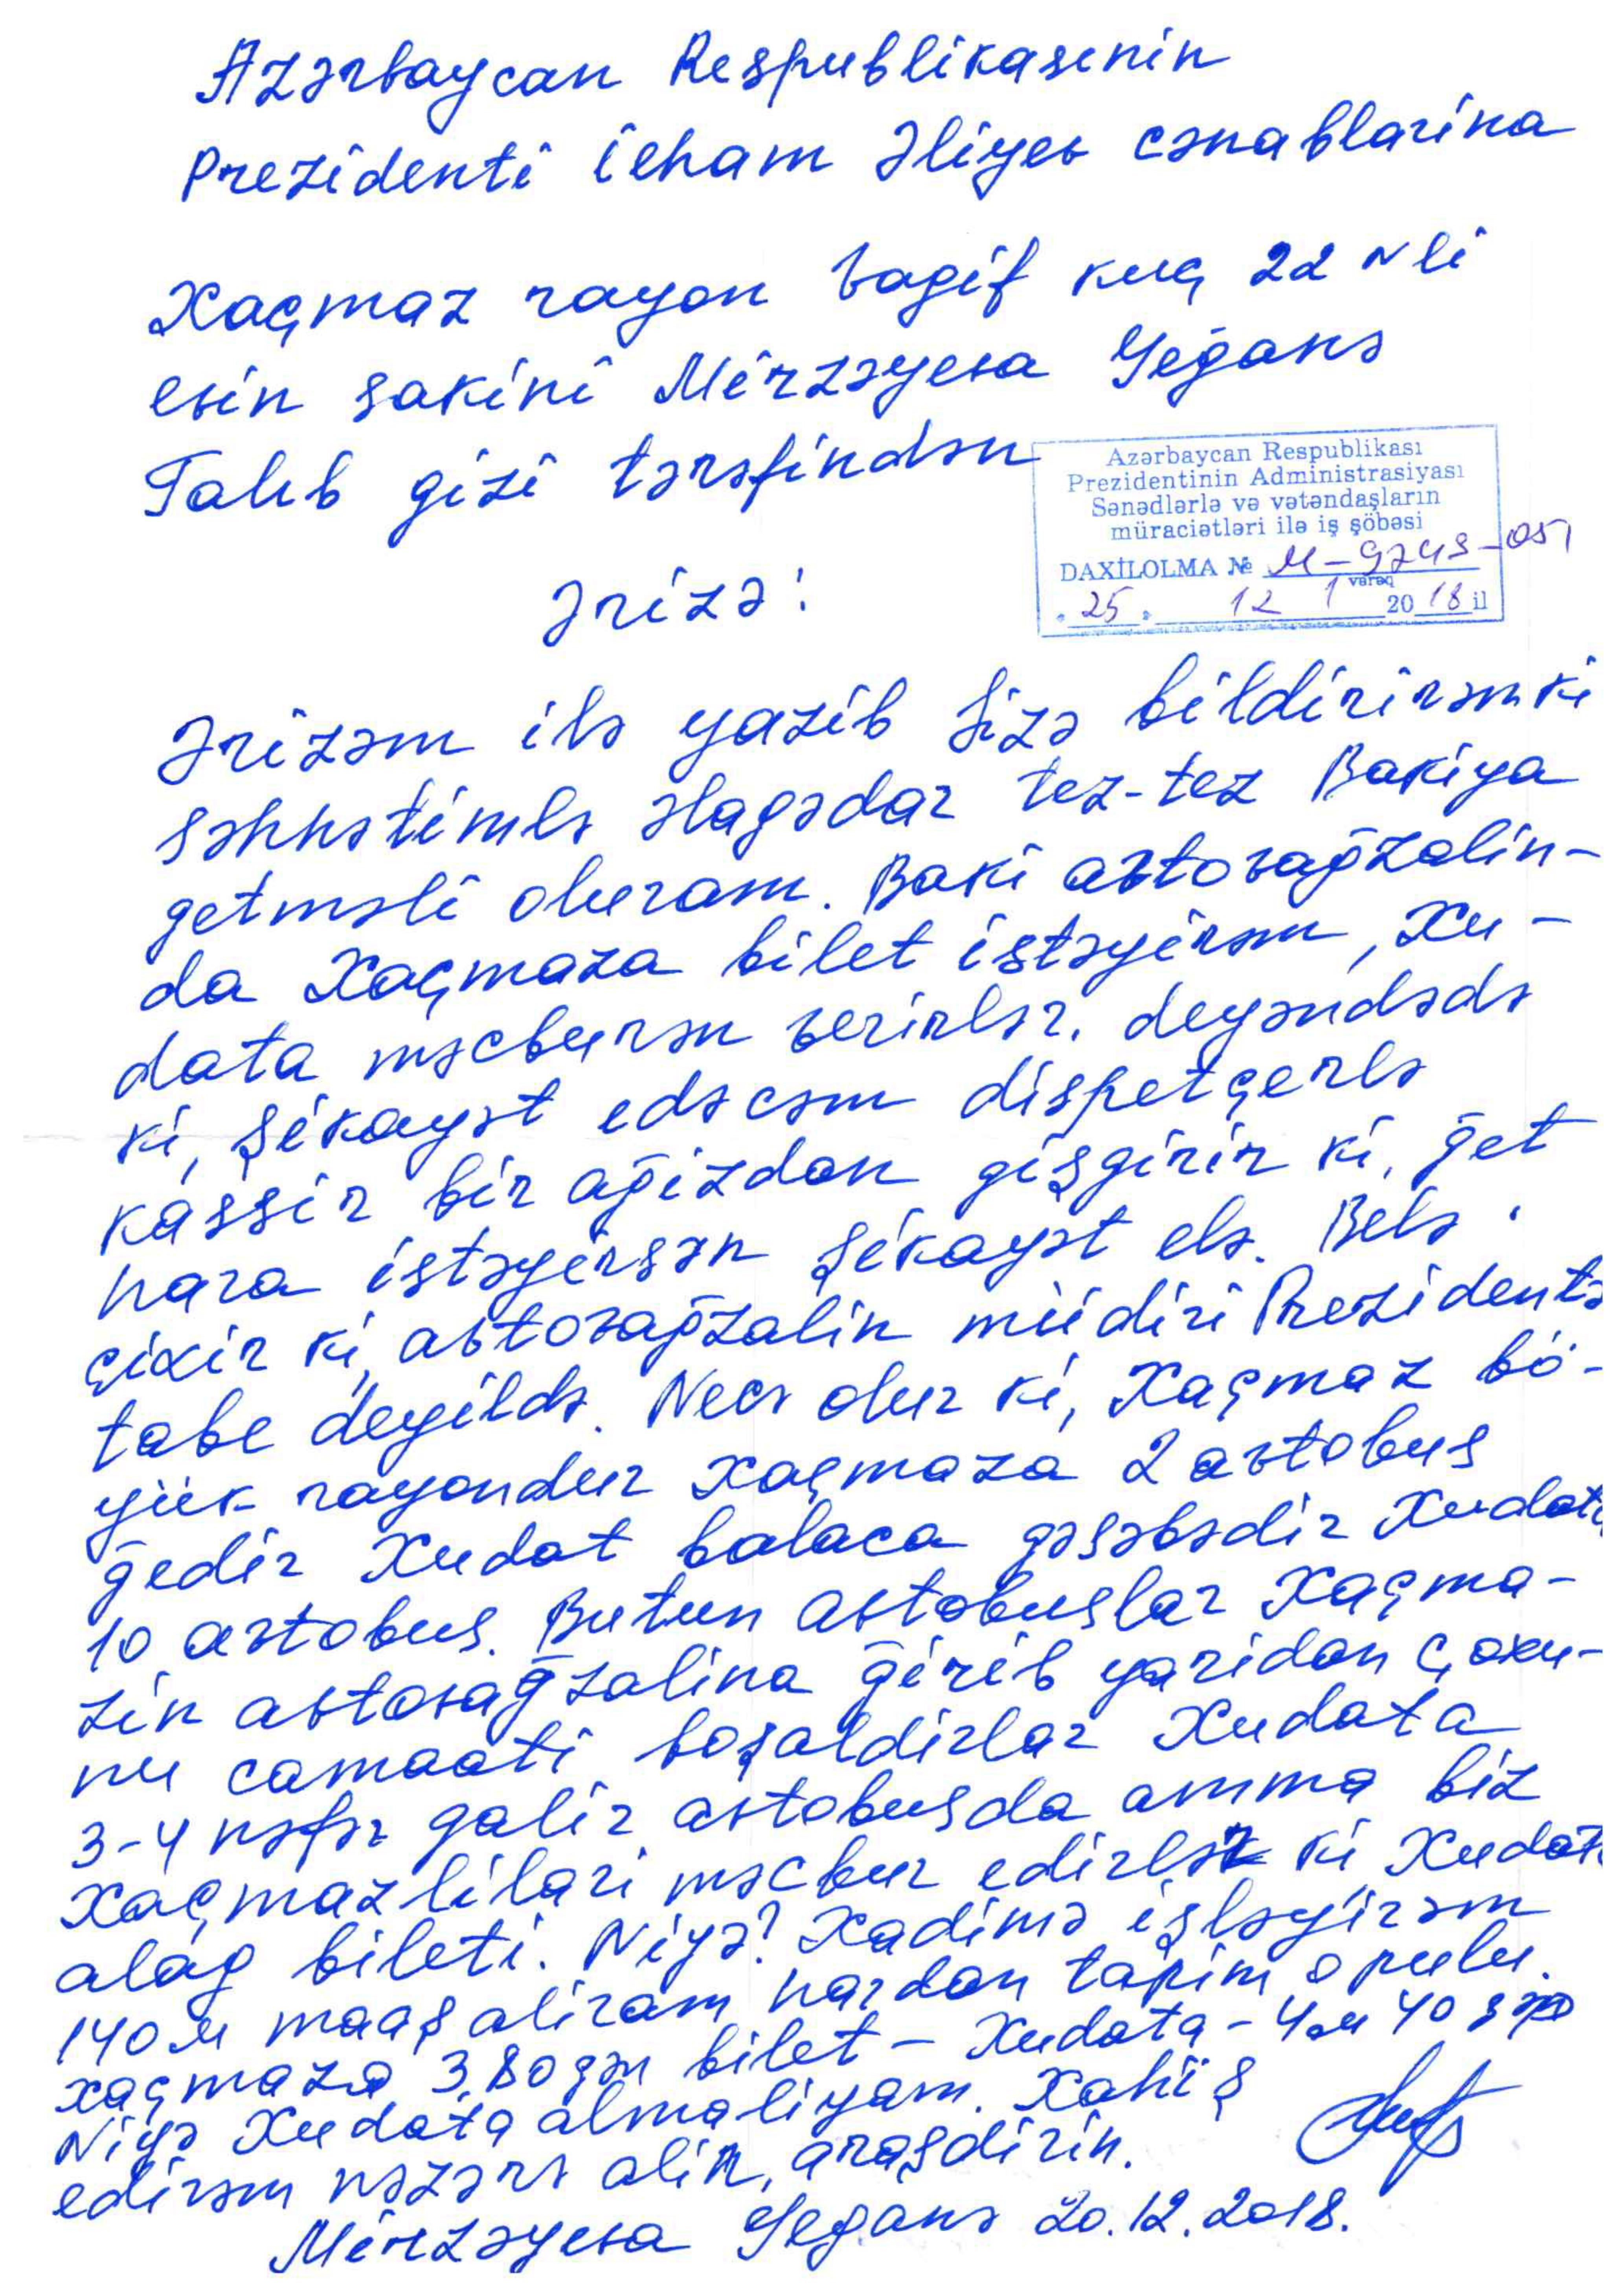 Azərbaycan Respublikasının
Prezidenti İlham Əliyev cənablarina
Xaçmaz rayon Vagif kuç 22 N li
evin sakini Mirzəyeva Yeğanə
Talıb gizi tərəfindən
Azərbaycan Respublikası
Prezidentinin Administrasiyası
Sənədlərlə və vətəndaşların
müraciətləri ilə iş şöbəsi
DAXİLOLMA № M-9743-051
vərəq
25 12 1 2018 il
Ərizə:
Ərizəm ilə yazib Sizə bildirirəm ki
səhhətimlə əlagədar tez-tez Bakiya
getməli oluram. Baki avtovağzalin-
da Xaçmaza bilet istəyirəm, Xu-
data məcburən verirlər. deyəndədə
ki, şikayət edəcəm dispetçerlə
kassir bir ağizdan gişgirir ki, ğet
hara istəyirsən şikayət elə. Belə
çixir ki, avtovağzalin müdiri Prezidentə
tabe deyildə. Necə olur ki, Xaçmaz bö-
yük rayondur Xaçmaza 2 avtobus
ğedir Xudat balaca gəsəbədir Xudata
10 avtobus. Butun avtobuslar Xaçma-
zin avtovağzalina ğirib yaridan çoxu-
nu camaati boşaldirlar Xudata
3-4 nəfər galir avtobusda amma biz
Xaçmazlilari məcbur edirlər ki, Xudata
alag bileti. Niyə? Xadimə işləyirəm
140 M maaş aliram hardan tapim o pulu.
Xaçmaza 3,80 gəp bilet - Xudata - 4 M 40 gəp
Niyə Xudata almaliyam. Xahiş
edirəm nəzərə alin, araşdirin.
Mirzəyeva Yeganə 20.12.2018.